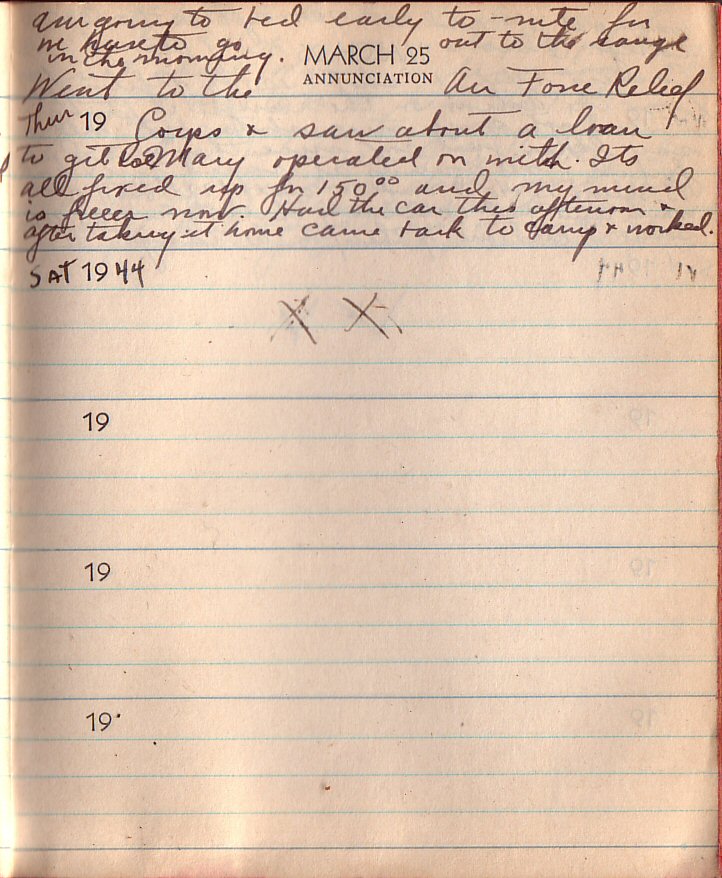 am going to bed early to-nite for
we have to go out to the range
in the morning.
MARCH 25
ANNUNCIATION
Went to the Air Force Relief
Thur 19 Corps & saw about a loan
to get Mary operated on with. Its
all fixed up for 150.00 and my mind
is freer now. Had the car this afternoon &
after taking it home came back to camp & worked.
SAT 1944
X X
19
19
19